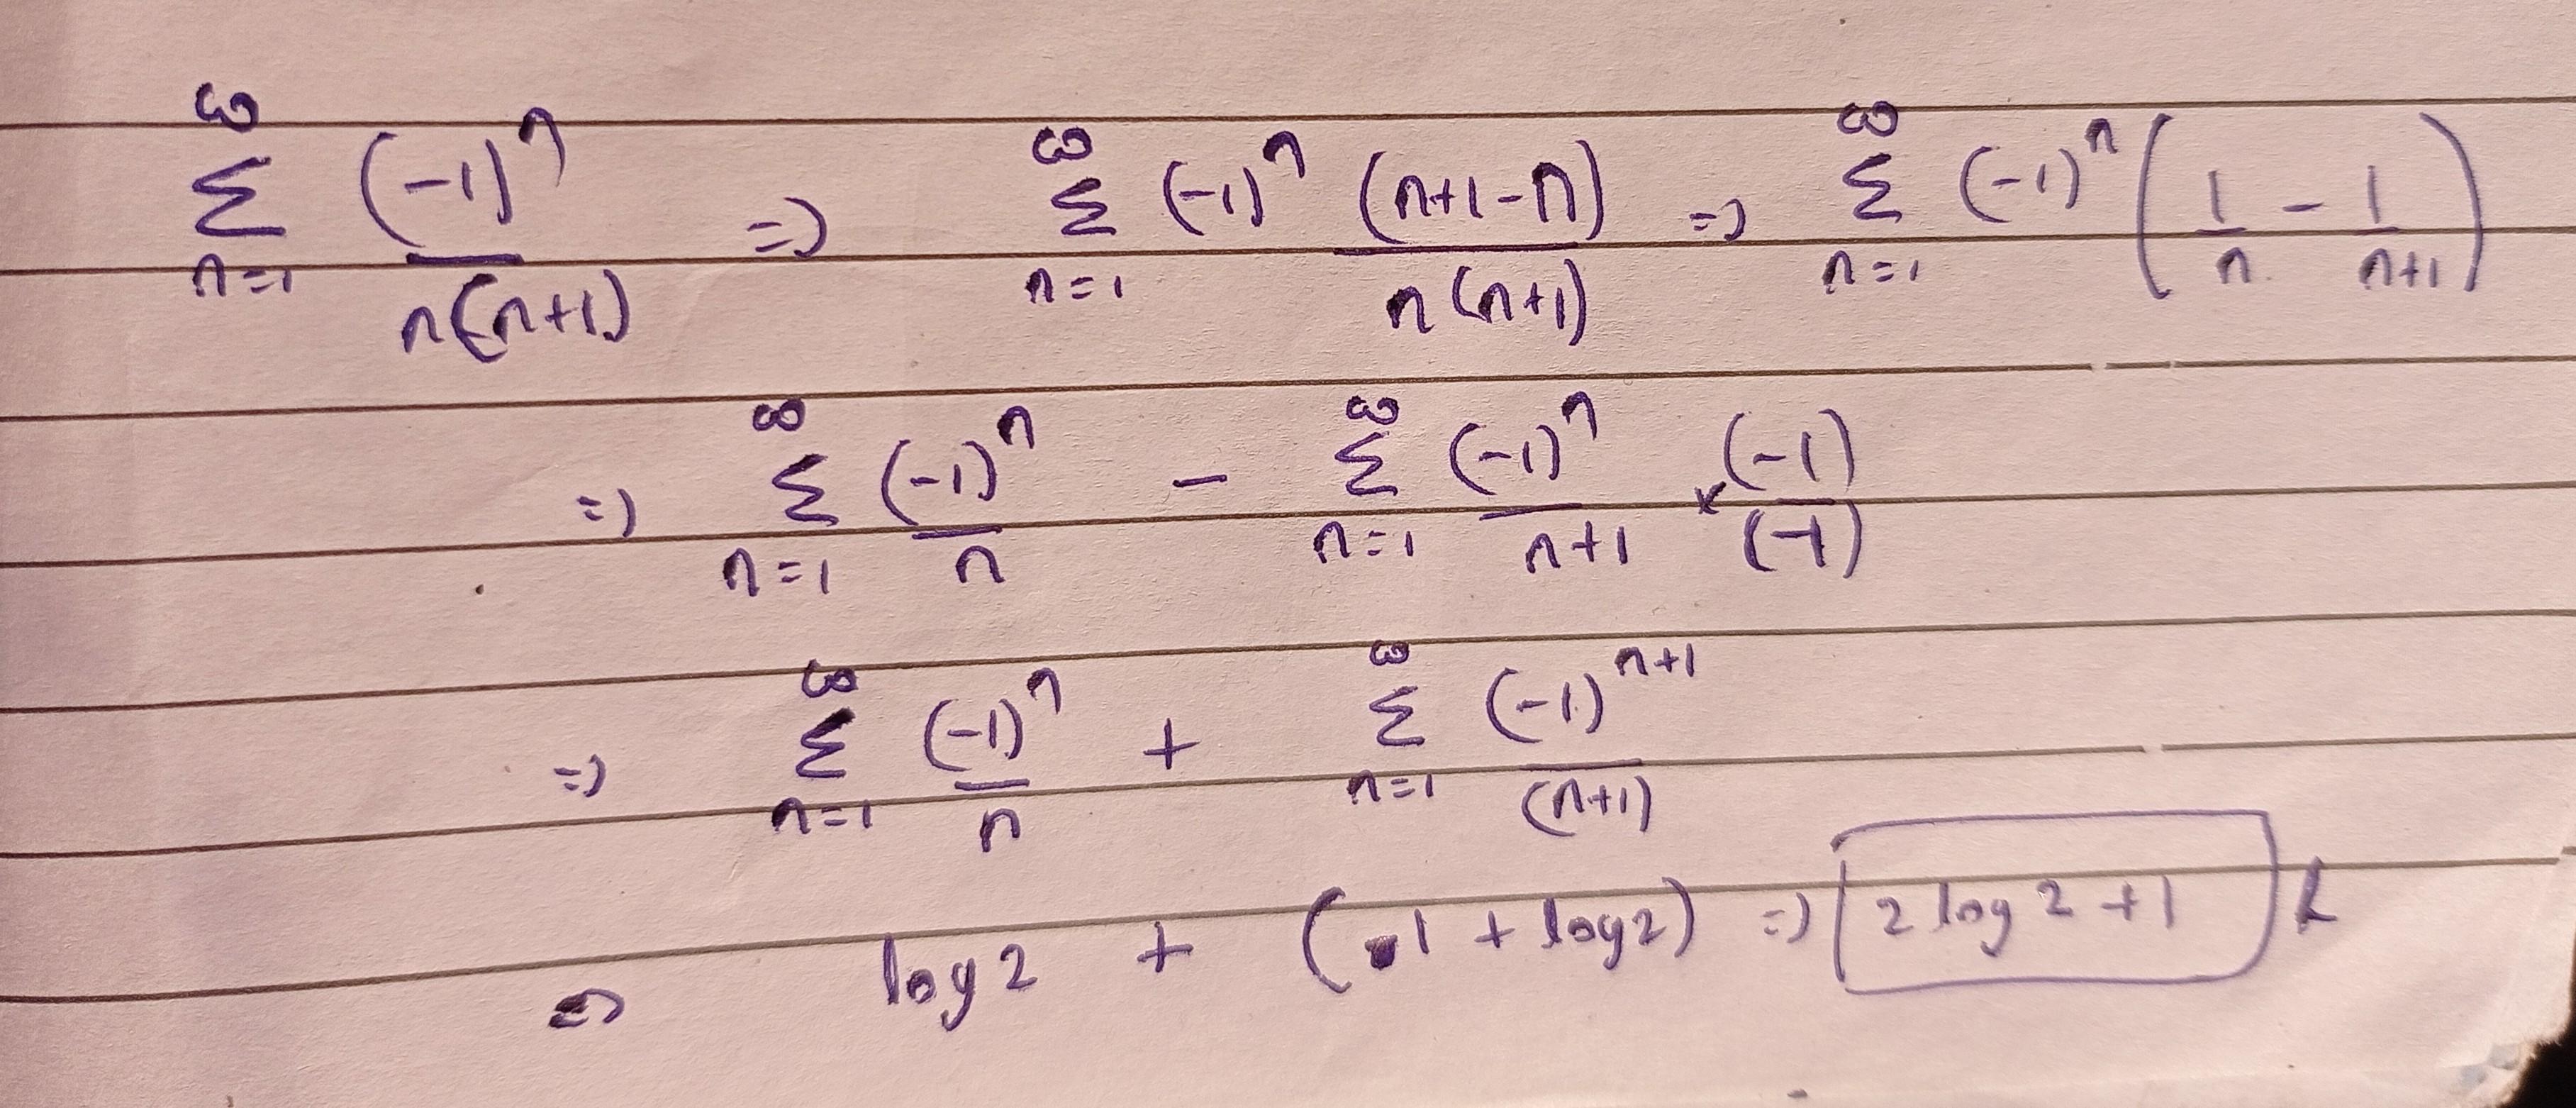 ∞Σn=1 (-1)^n / n(n+1) => ∞Σn=1 (-1)^n (n+1-n) / n(n+1) => ∞Σn=1 (-1)^n (1/n - 1/n+1)
=> ∞Σn=1 (-1)^n / n - ∞Σn=1 (-1)^n / n+1 × (-1)/(-1)
=> ∞Σn=1 (-1)^n / n + ∞Σn=1 (-1)^n+1 / (n+1)
=> log 2 + (1 + log 2) => 2 log 2 + 1